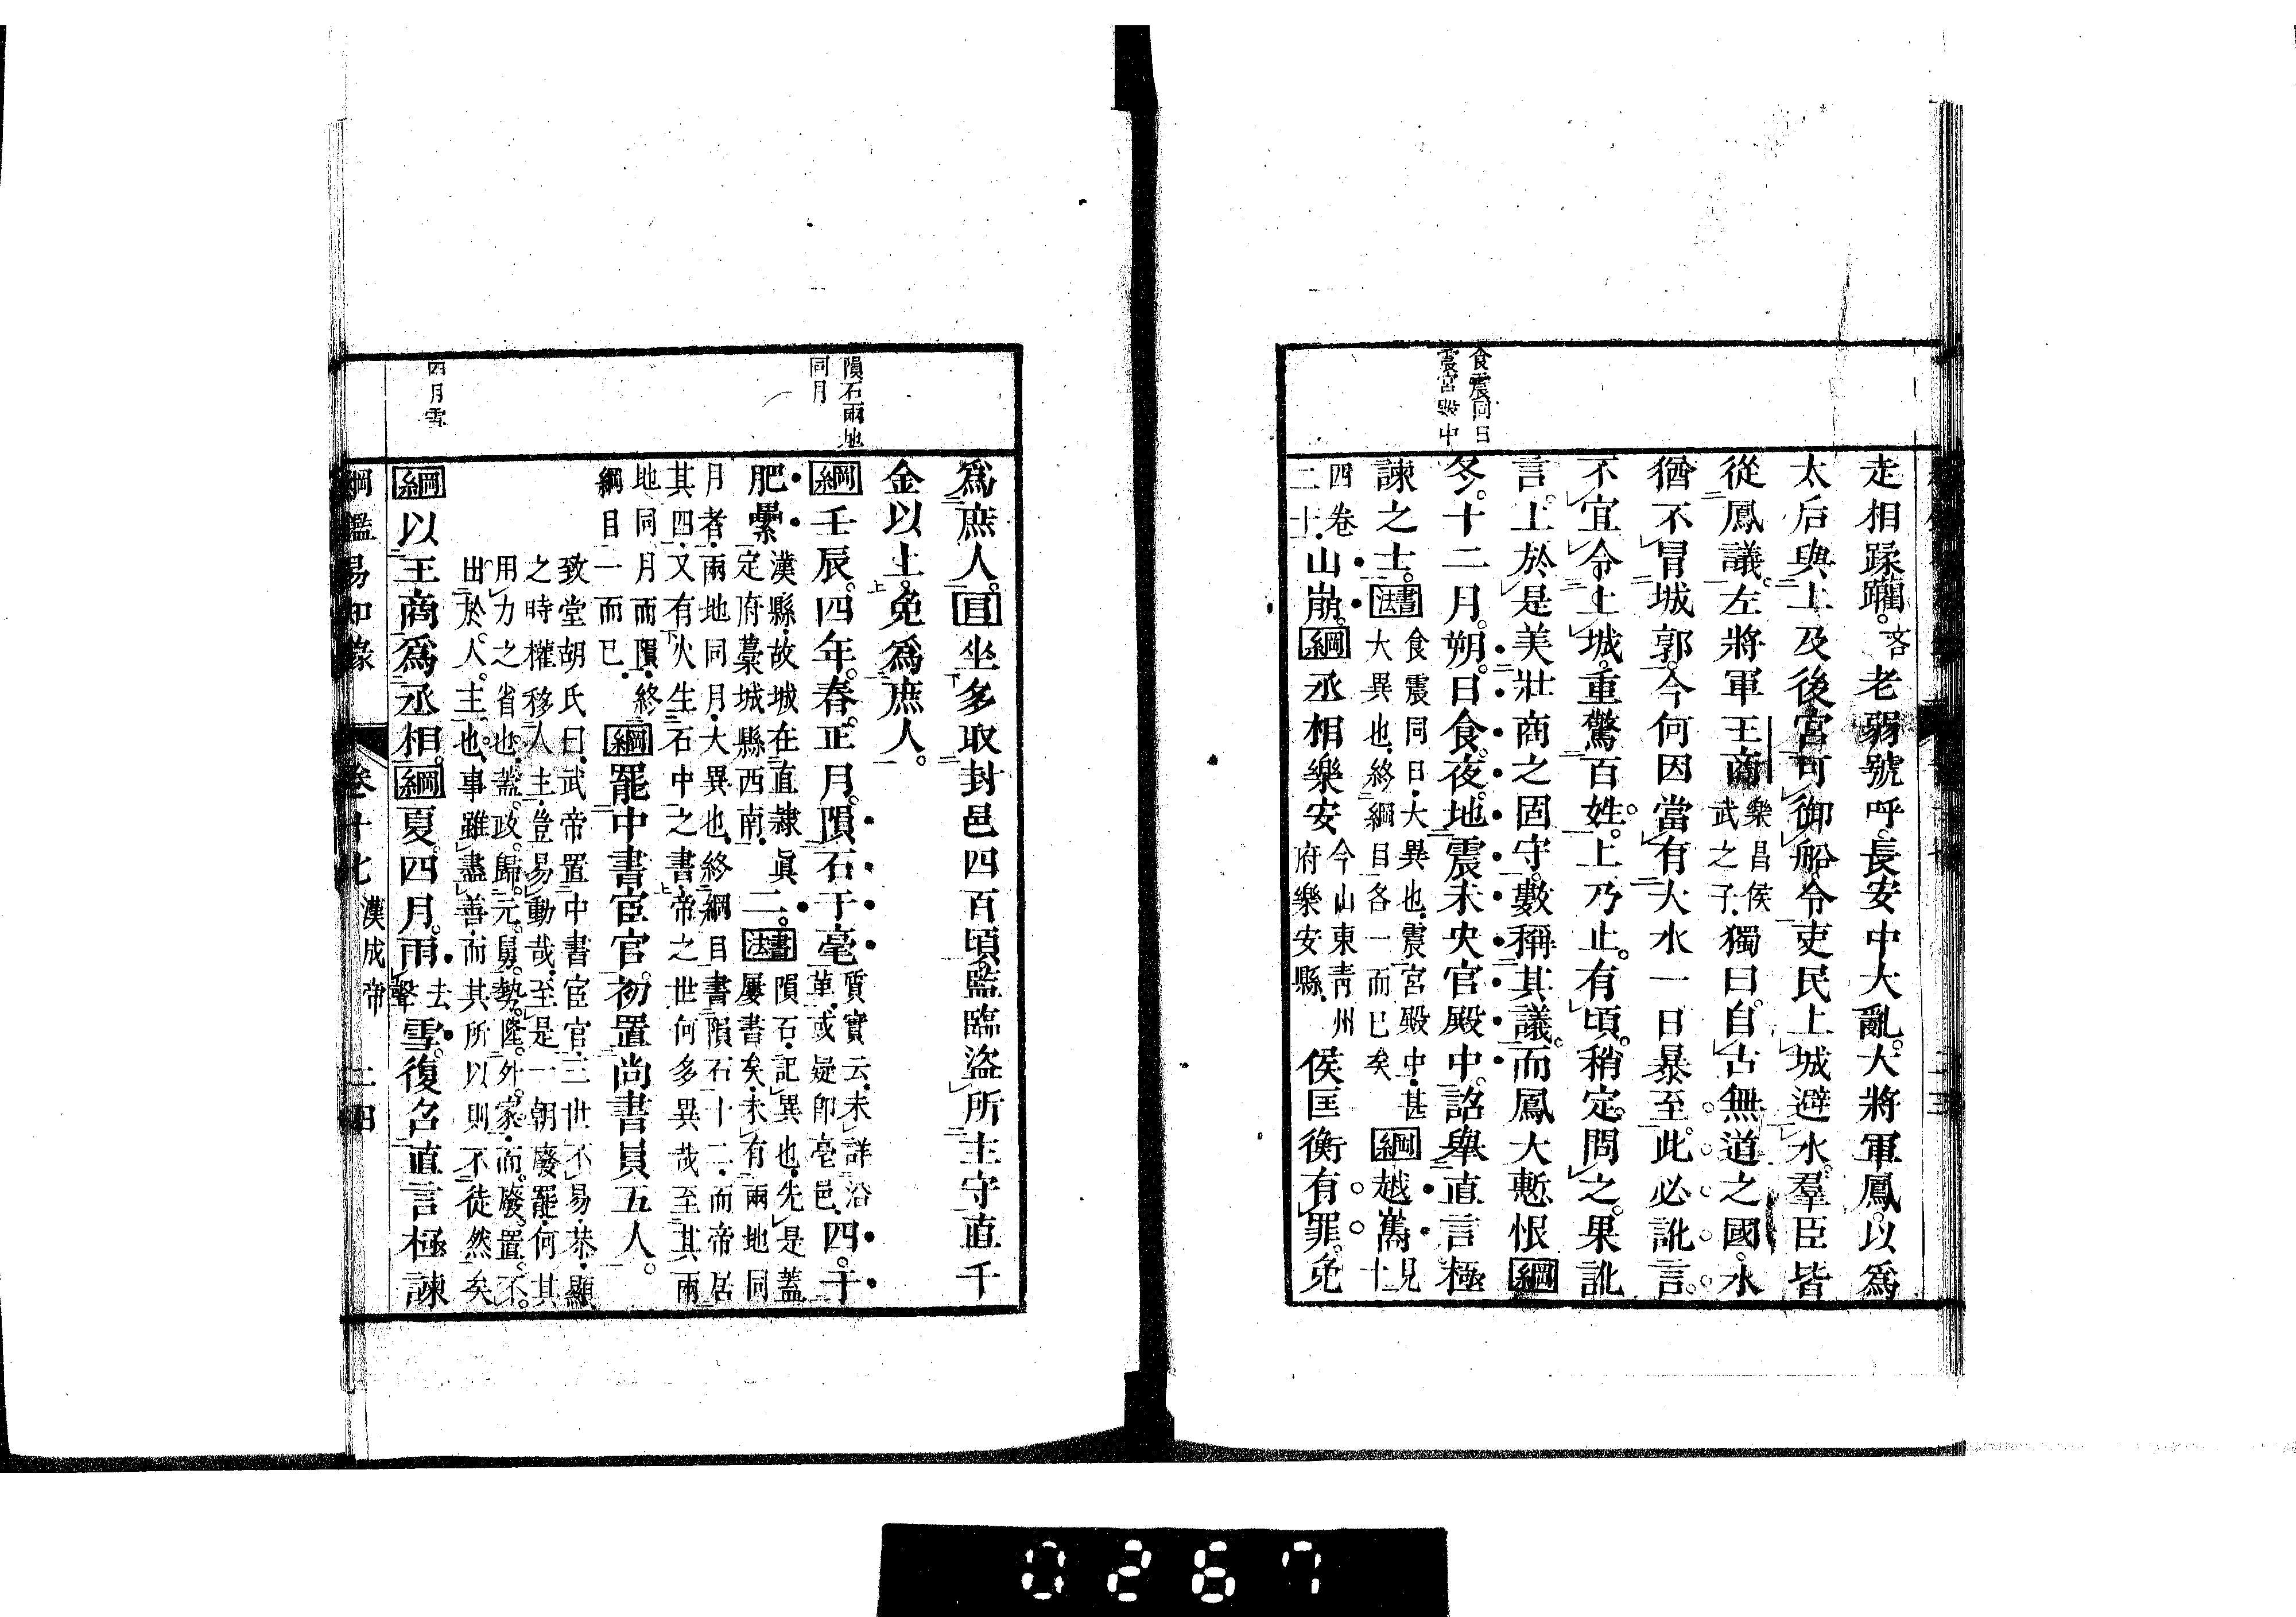 食震同日
震宮殿中
走相蹂躪。吝老弱號呼。長安中大亂。大將軍鳳。以爲
太后與上及後宮可御船。令吏民上城避水。羣臣皆
從鳳議。左將軍王商樂昌侯武之子。獨曰。自古無道之國。水
猶不冒城郭。今何因當有大水一日暴至。此必訛言。
不宜令上城。重驚百姓。上乃止。有頃。稍定。問之。果訛
言。上於是美壯商之固守。數稱其議。而鳳大慙恨綱
冬。十二月。朔。日食。夜。地震未央宮殿中。詔舉直言極
諫之士。書法食震同日。大異也。震宮殿中。甚大異也。終綱目各一而已矣綱越嶲見十
四卷二十。山崩。綱丞相樂安今山東靑州府樂安縣。侯匡衡有罪。免
隕石兩地
同月
四月雪
爲庶人。目坐多取封邑四百頃。監臨盜所主守直千
金以上。免爲庶人。
綱壬辰。四年。春。正月。隕石于亳質實云。未詳沿革。或疑卽亳邑。四。于
肥纍漢縣。故城在直隸眞定府藁城縣西南。二。書法隕石。記異也。先是蓋屢書矣。未有兩地同
月者。兩地同月。大異也。終綱目書隕石十二。而帝居
其四。又有火生石中之書。帝之世何多異哉至其兩
地同月而隕。終綱目一而已。綱罷中書宦官。初置尚書員五人。
致堂胡氏曰。武帝置中書宦官。三世不易。恭。顯
之時權移人主。豈易動哉。至是一朝廢罷。何其
用力之省也。蓋。政。歸。元。舅。勢。隆。外。家。而。廢。置。不。
出。於。人。主。也。事雖盡善。而其所以則不徒然矣
綱以王商爲丞相。綱夏。四月。雨去聲雪。復召直言極諫
綱鑑易知錄 卷十七 漢成帝 二四
0267